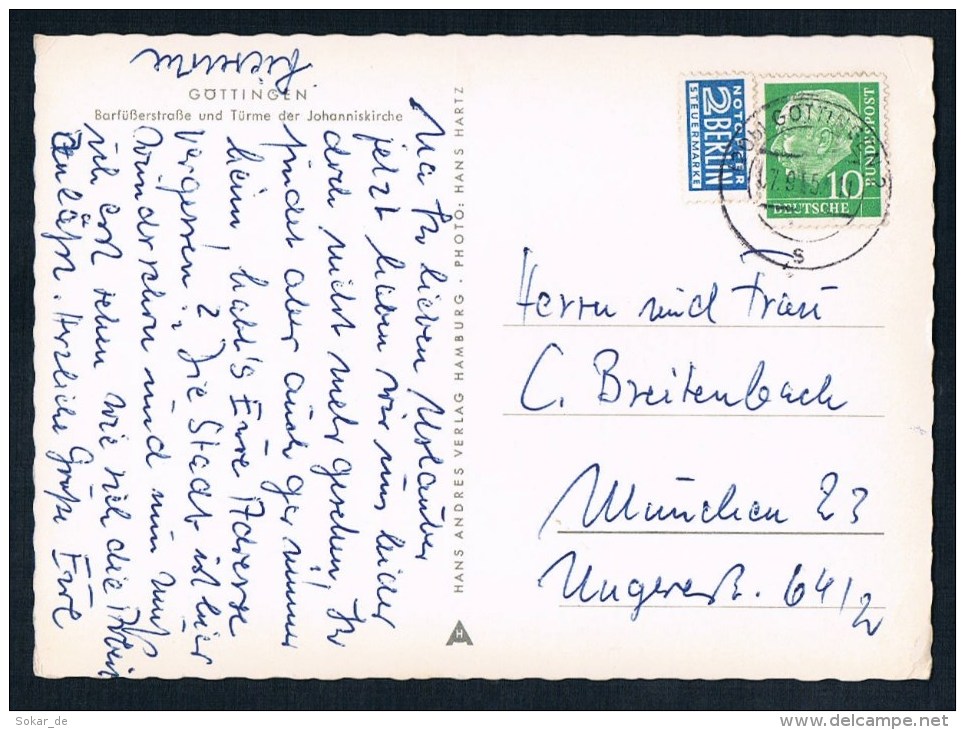 GÖTTINGEN
Barfüßerstraße und Türme der Johanniskirche
Na Ihr lieben Urlauber
jetzt haben wir uns leider
doch nicht mehr gesehen! Ihr
findet aber auch gar nimmer
heim, habt's Eure Adresse
vergessen? Die Stadt ist hier
wunderschön und nun muß
ich erst sehen wie sich die Arbeit
anläßt. Herzliche Grüße Eure
HANS ANDRES VERLAG HAMBURG · PHOTO: HANS HARTZ
H
NOTOPFER
2 BERLIN
STEUERMARKE
DEUTSCHE
BUNDESPOST
10
GÖTTINGEN 2
7.9.55
s
Herrn und Frau
C. Breitenbach
München 23
Ungererstr. 64/2
Sokar_de
delcampe.net